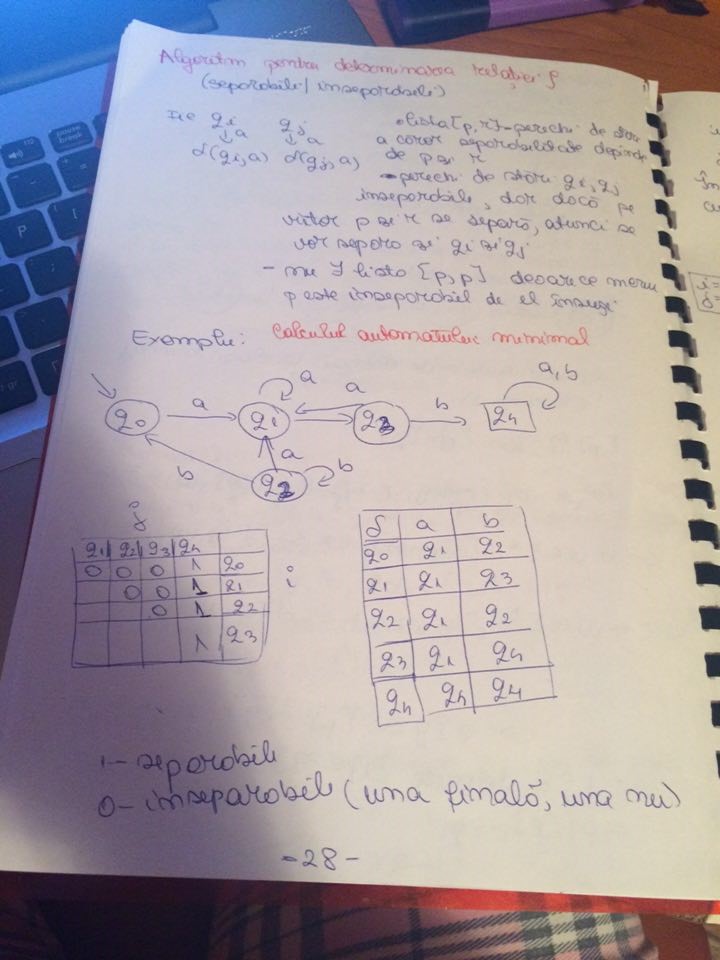 Algoritm pentru determinarea relației ρ
(separabile/inseparabile)
Fie qi qj
↓a ↓a
δ(qi,a) δ(qj,a)
•lista[p,r]-perechi de stări
a căror separabilitate depinde
de p și r
-perechi de stări qi,qj
inseparabile, dar dacă pe
viitor p și r se separă, atunci se
vor separa și qi și qj
- nu ∃ lista [p,p] deoarece mereu
p este inseparabil de el însuși
Exemplu: Calculul automatului minimal
a a a,b
q0 a q1 q3 b q4
b a q2 b
j
q1 q2 q3 q4
0 0 0 1 q0
0 0 1 q1
0 1 q2
1 q3
i
δ a b
q0 q1 q2
q1 q1 q3
q2 q1 q2
q3 q1 q4
q4 q4 q4
1- separabile
0- inseparabile (una finală, una nu)
-28-
pause
break
P